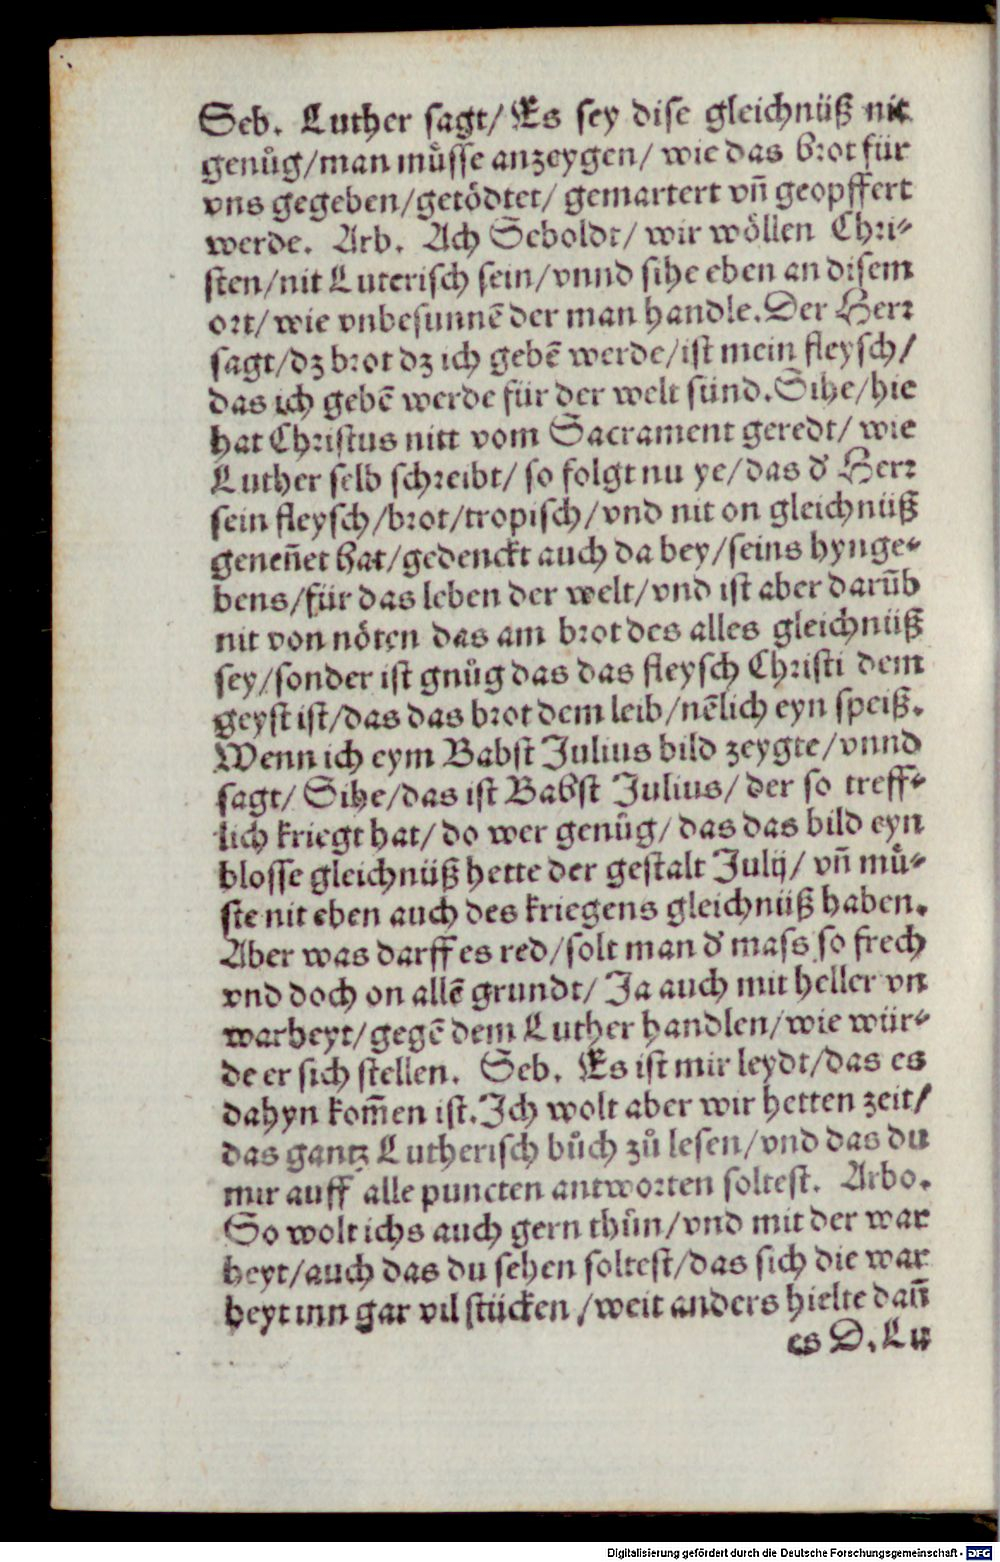 Seb. Luther sagt/ Es sey dise gleichnüß nit
genuͦg/man muͤsse anzeygen/ wie das brot für
vns gegeben/getödtet/ gemartert vñ geopffert
werde. Arb. Ach Seboldt/ wir wöllen Chri⸗
sten/nit Luterisch sein/vnnd sihe eben an disem
ort/ wie vnbesunnē der man handle. Der Herr
sagt/dz brot dz ich gebē werde/ist mein fleysch/
das ich gebē werde für der welt sünd. Sihe/hie
hat Christus nitt vom Sacrament geredt/ wie
Luther selb schreibt/ so folgt nu ye/das d' Herr
sein fleysch/brot/tropisch/vnd nit on gleichnüß
geneñet hat/gedenckt auch da bey/seins hynge⸗
bens/für das leben der welt/vnd ist aber darūb
nit von nöten das am brot des alles gleichnüß
sey/sonder ist gnuͦg das das fleysch Christi dem
geyst ist/das das brot dem leib/nēlich eyn speiß.
Wenn ich eym Babst Julius bild zeygte/vnnd
sagt/ Sihe/das ist Babst Julius/ der so treff⸗
lich kriegt hat/ do wer genuͦg/ das das bild eyn
blosse gleichnüß hette der gestalt Julij/ vñ muͤ⸗
ste nit eben auch des kriegens gleichnüß haben.
Aber was darff es red/solt man d' mass so frech
vnd doch on allē grundt/ Ja auch mit heller vn
warheyt/gegē dem Luther handlen/wie wür⸗
de er sich stellen. Seb. Es ist mir leydt/das es
dahyn kom̃en ist. Ich wolt aber wir hetten zeit/
das gantz Lutherisch buͦch zuͦ lesen/vnd das du
mir auff alle puncten antworten soltest. Arbo.
So wolt ichs auch gern thuͦn/vnd mit der war
heyt/auch das du sehen soltest/das sich die war
heyt inn gar vil stücken/weit anders hielte dañ
es D. Lu
Digitalisierung gefördert durch die Deutsche Forschungsgemeinschaft - DFG